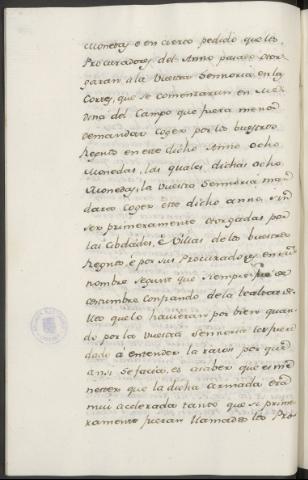 Monedas e en cierto pedido que los
Procuradores del Anno pasado otor-
garan, à la Vuestra Sennoria en las
Cortes, que se comenzaran en Me-
dina del Campo que fuera menos
demandar Coger por los buestros
Regnos en este dicho Anno ocho
Monedas, las quales dichas ocho
Monedas, la Vuestra Sennoria man-
dara Coger este dicho anno, sin
ser primeramente otorgadas por
las Cibdades, è Villas de los buestros
Regnos, è por sus Procuradores en su
nombre segunt que siempre fue de
costumbre Confiando de la lealtad de
ellos que lo havieran por bien quan-
do por la Vuestra Sennoria les fuera
dado a entender la razon por que
ansi se facia, es asaber que es me-
nester que la dicha armada era
mui acelerada tanto que si prime-
ramente fueran llamados los Pro-